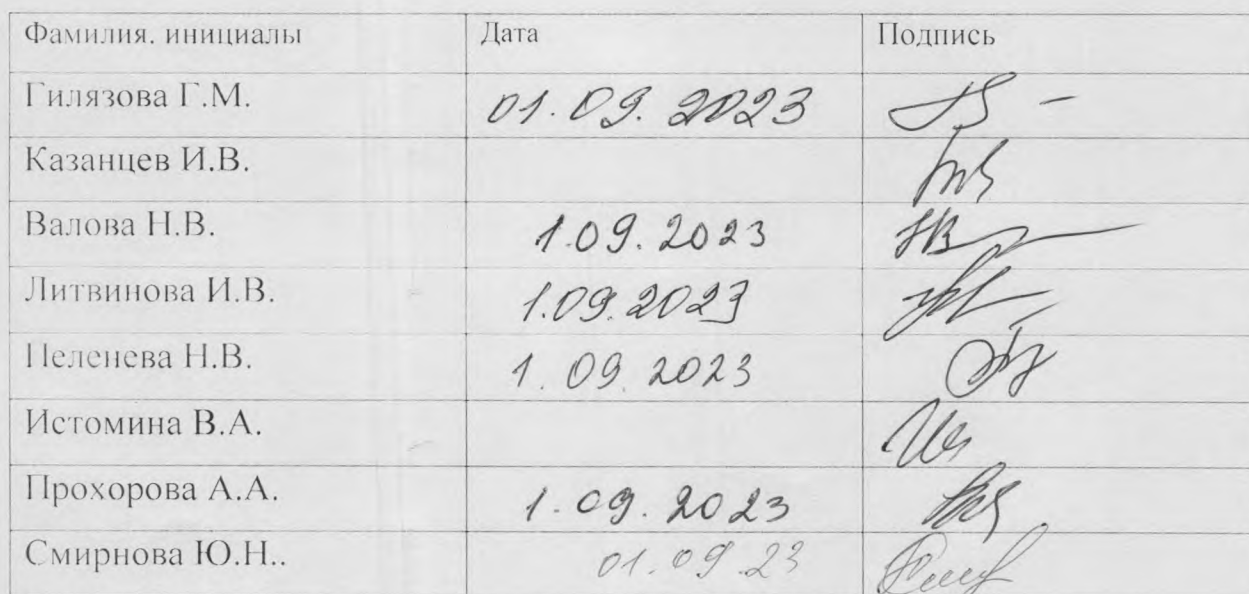 Фамилия, инициалы Дата Подпись
Гилязова Г.М. 01.09.2023
Казанцев И.В.
Валова Н.В. 1.09.2023
Литвинова И.В. 1.09.2023
Пеленева Н.В. 1.09.2023
Истомина В.А.
Прохорова А.А. 1.09.2023
Смирнова Ю.Н.. 01.09.23